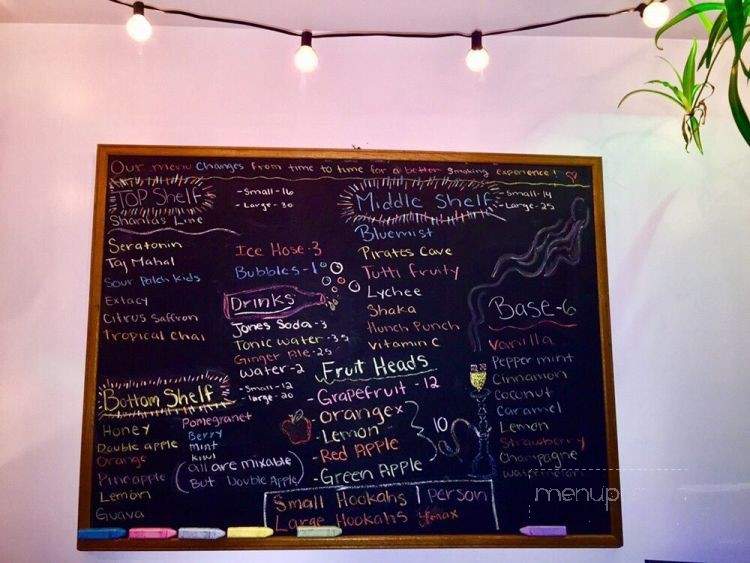 Our menu changes from time to time for a better smoking experience!
TOP Shelf
- Small - 16
- Large - 30
Sharita's Line
Seratonin
Taj Mahal
Sour Patch Kids
Extacy
Citrus Saffron
Tropical Chai
Ice Hose - 3
Bubbles - 1
Drinks
Jones Soda - 3
Tonic water - 3.5
Ginger Ale - 2.5
water - 2
Middle Shelf
- Small - 14
- Large - 25
Bluemist
Pirates Cave
Tutti fruity
Lychee
Shaka
Hunch Punch
Vitamin C
Base - 6
Vanilla
Peppermint
Cinnamon
Coconut
Caramel
Lemon
Strawberry
Champagne
Bottom Shelf
- Small - 12
- large - 20
Honey
Double apple
Orange
Pineapple
Lemon
Guava
Pomegranet
Berry
Mint
Kiwi
(all are mixable
But Double Apple)
Fruit Heads
- Grapefruit - 12
- Orange x
- Lemon
- Red Apple
- Green Apple
10
Small Hookahs 1 person
Large Hookahs 4 max
menup